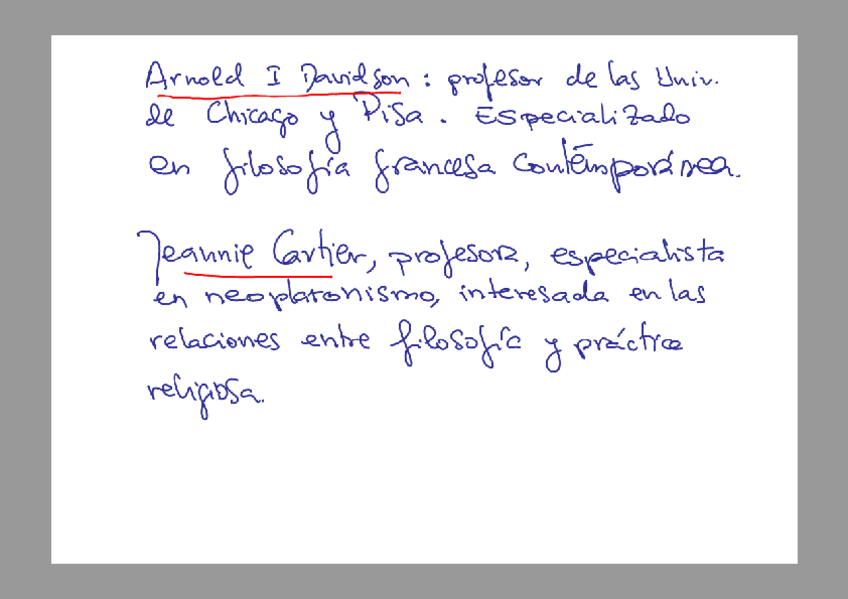 Arnold I Davidson : profesor de las Univ.
de Chicago y Pisa. Especializado
en filosofía francesa contemporánea.
Jeannie Cartier, profesora, especialista
en neoplatonismo, interesada en las
relaciones entre filosofía y práctica
religiosa.